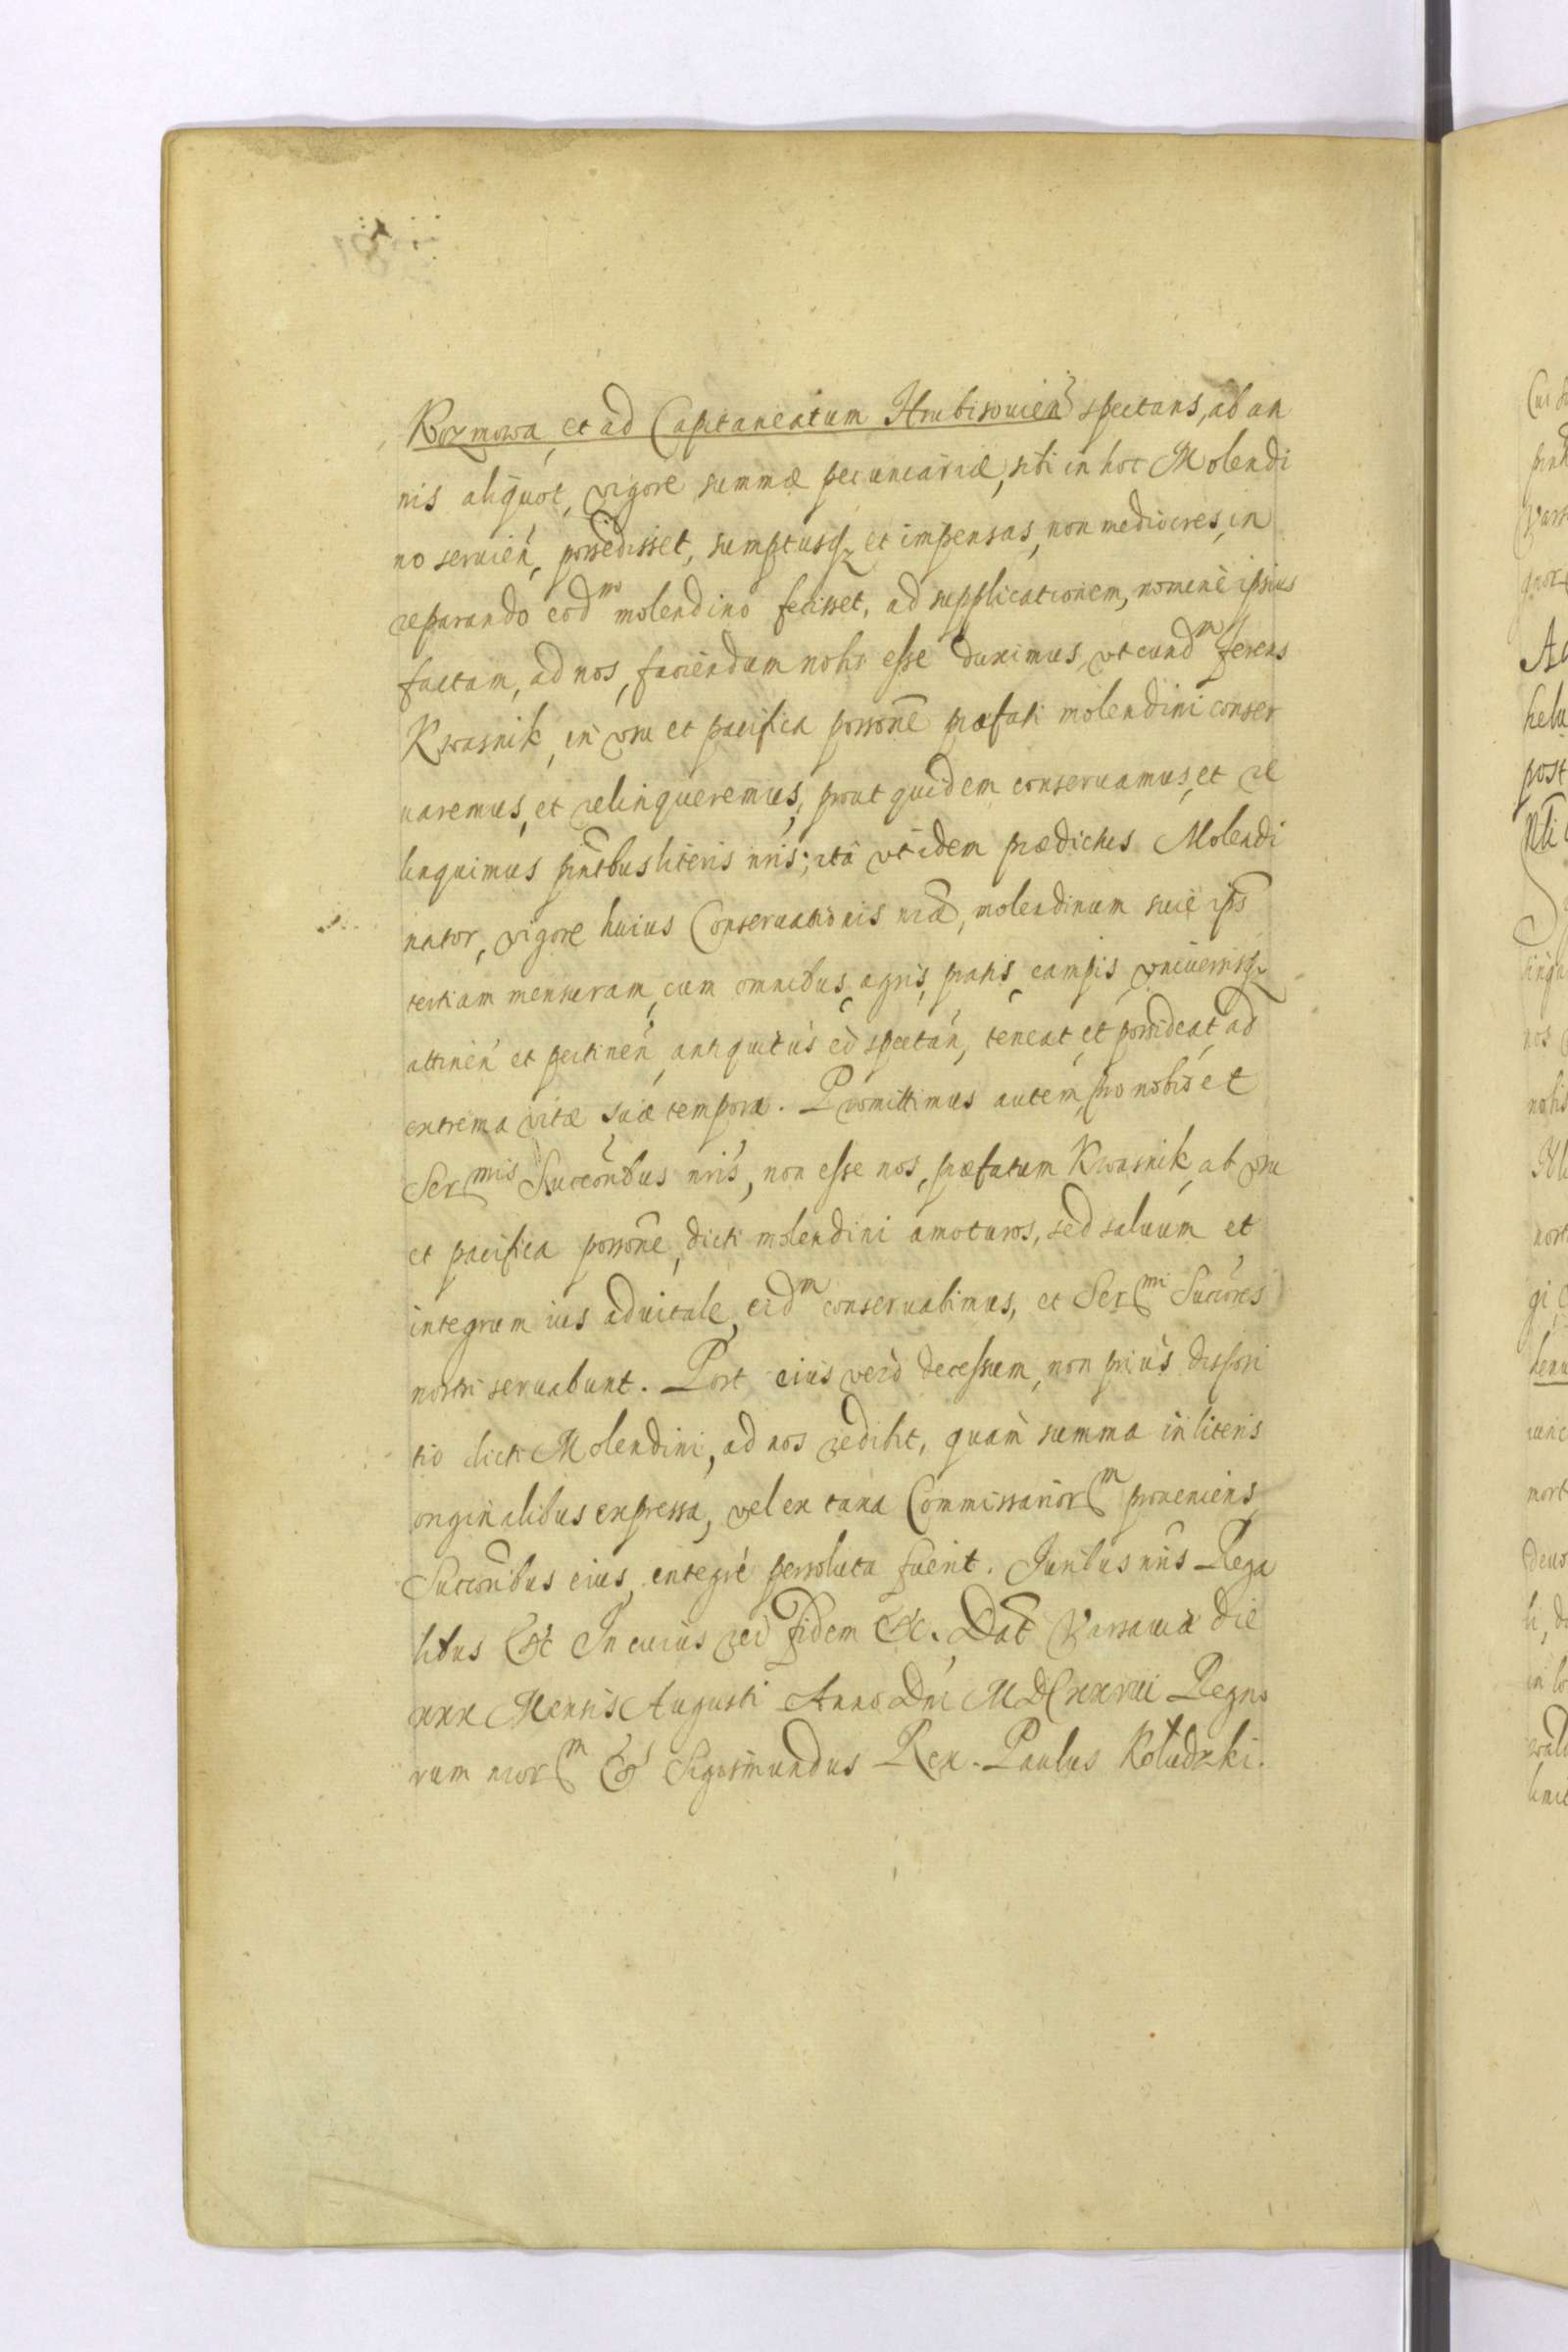 Kozmowa, et ad Capitaneatum Hrubisouień spectans, ab an
nis aliquot, vigore summæ pecuniariæ, sibi in hoc Molendi
no seruień, possedisset, sumptusq₃ et impensas, non mediocres, in
reparando eodᵐᵒ molendino fecisset, ad supplicationem, nomine ipsius
factam, ad nos, faciendam nobis esse duximus, vt eundᵐ
Kwasnik, in vsu et pacifica possone præfati molendini conser
uaremus, et relinqueremus, prout quidem conseruamus, et re
linquimus pntibus literis nris; ita vt idem prædictus Molendi
nator, vigore huius Conseruationis nræ, molendinum siue ips
tertiam mensuram, cum omnibus, agris, pratis, campis vniuersisq₃
attineń et pertineń, antiquitus eò spectań, teneat, et possideat, ad
extrema vitæ suæ tempora. Promittimus autem, pro nobis et
Serᵐⁱˢ Succoribus nris, non esse nos, præfatum Kwasnik, ab vsu
et pacifica possone, dicti molendini amoturos, sed saluum et
integrum ius aduitale, eidᵐ conseruabimus, et Serᵐⁱ Succores
nostri seruabunt. Post eius verò decessum, non prius disposi
tio dicti Molendini, ad nos redibit, quam summa in literis
originalibus expressa, vel ex taxa Commissariorᵐ proueniens,
Succoribus eius, integrè persoluta fuerit. Juribus nris Rega
libus &c In cuius rei fidem &c. Dat Varsauiæ die
xxx Mensis Augusti Anno Dni MDCxxviii Regno
rum nrorᵐ & Sigismundus Rex. Paulus Kołudzki.